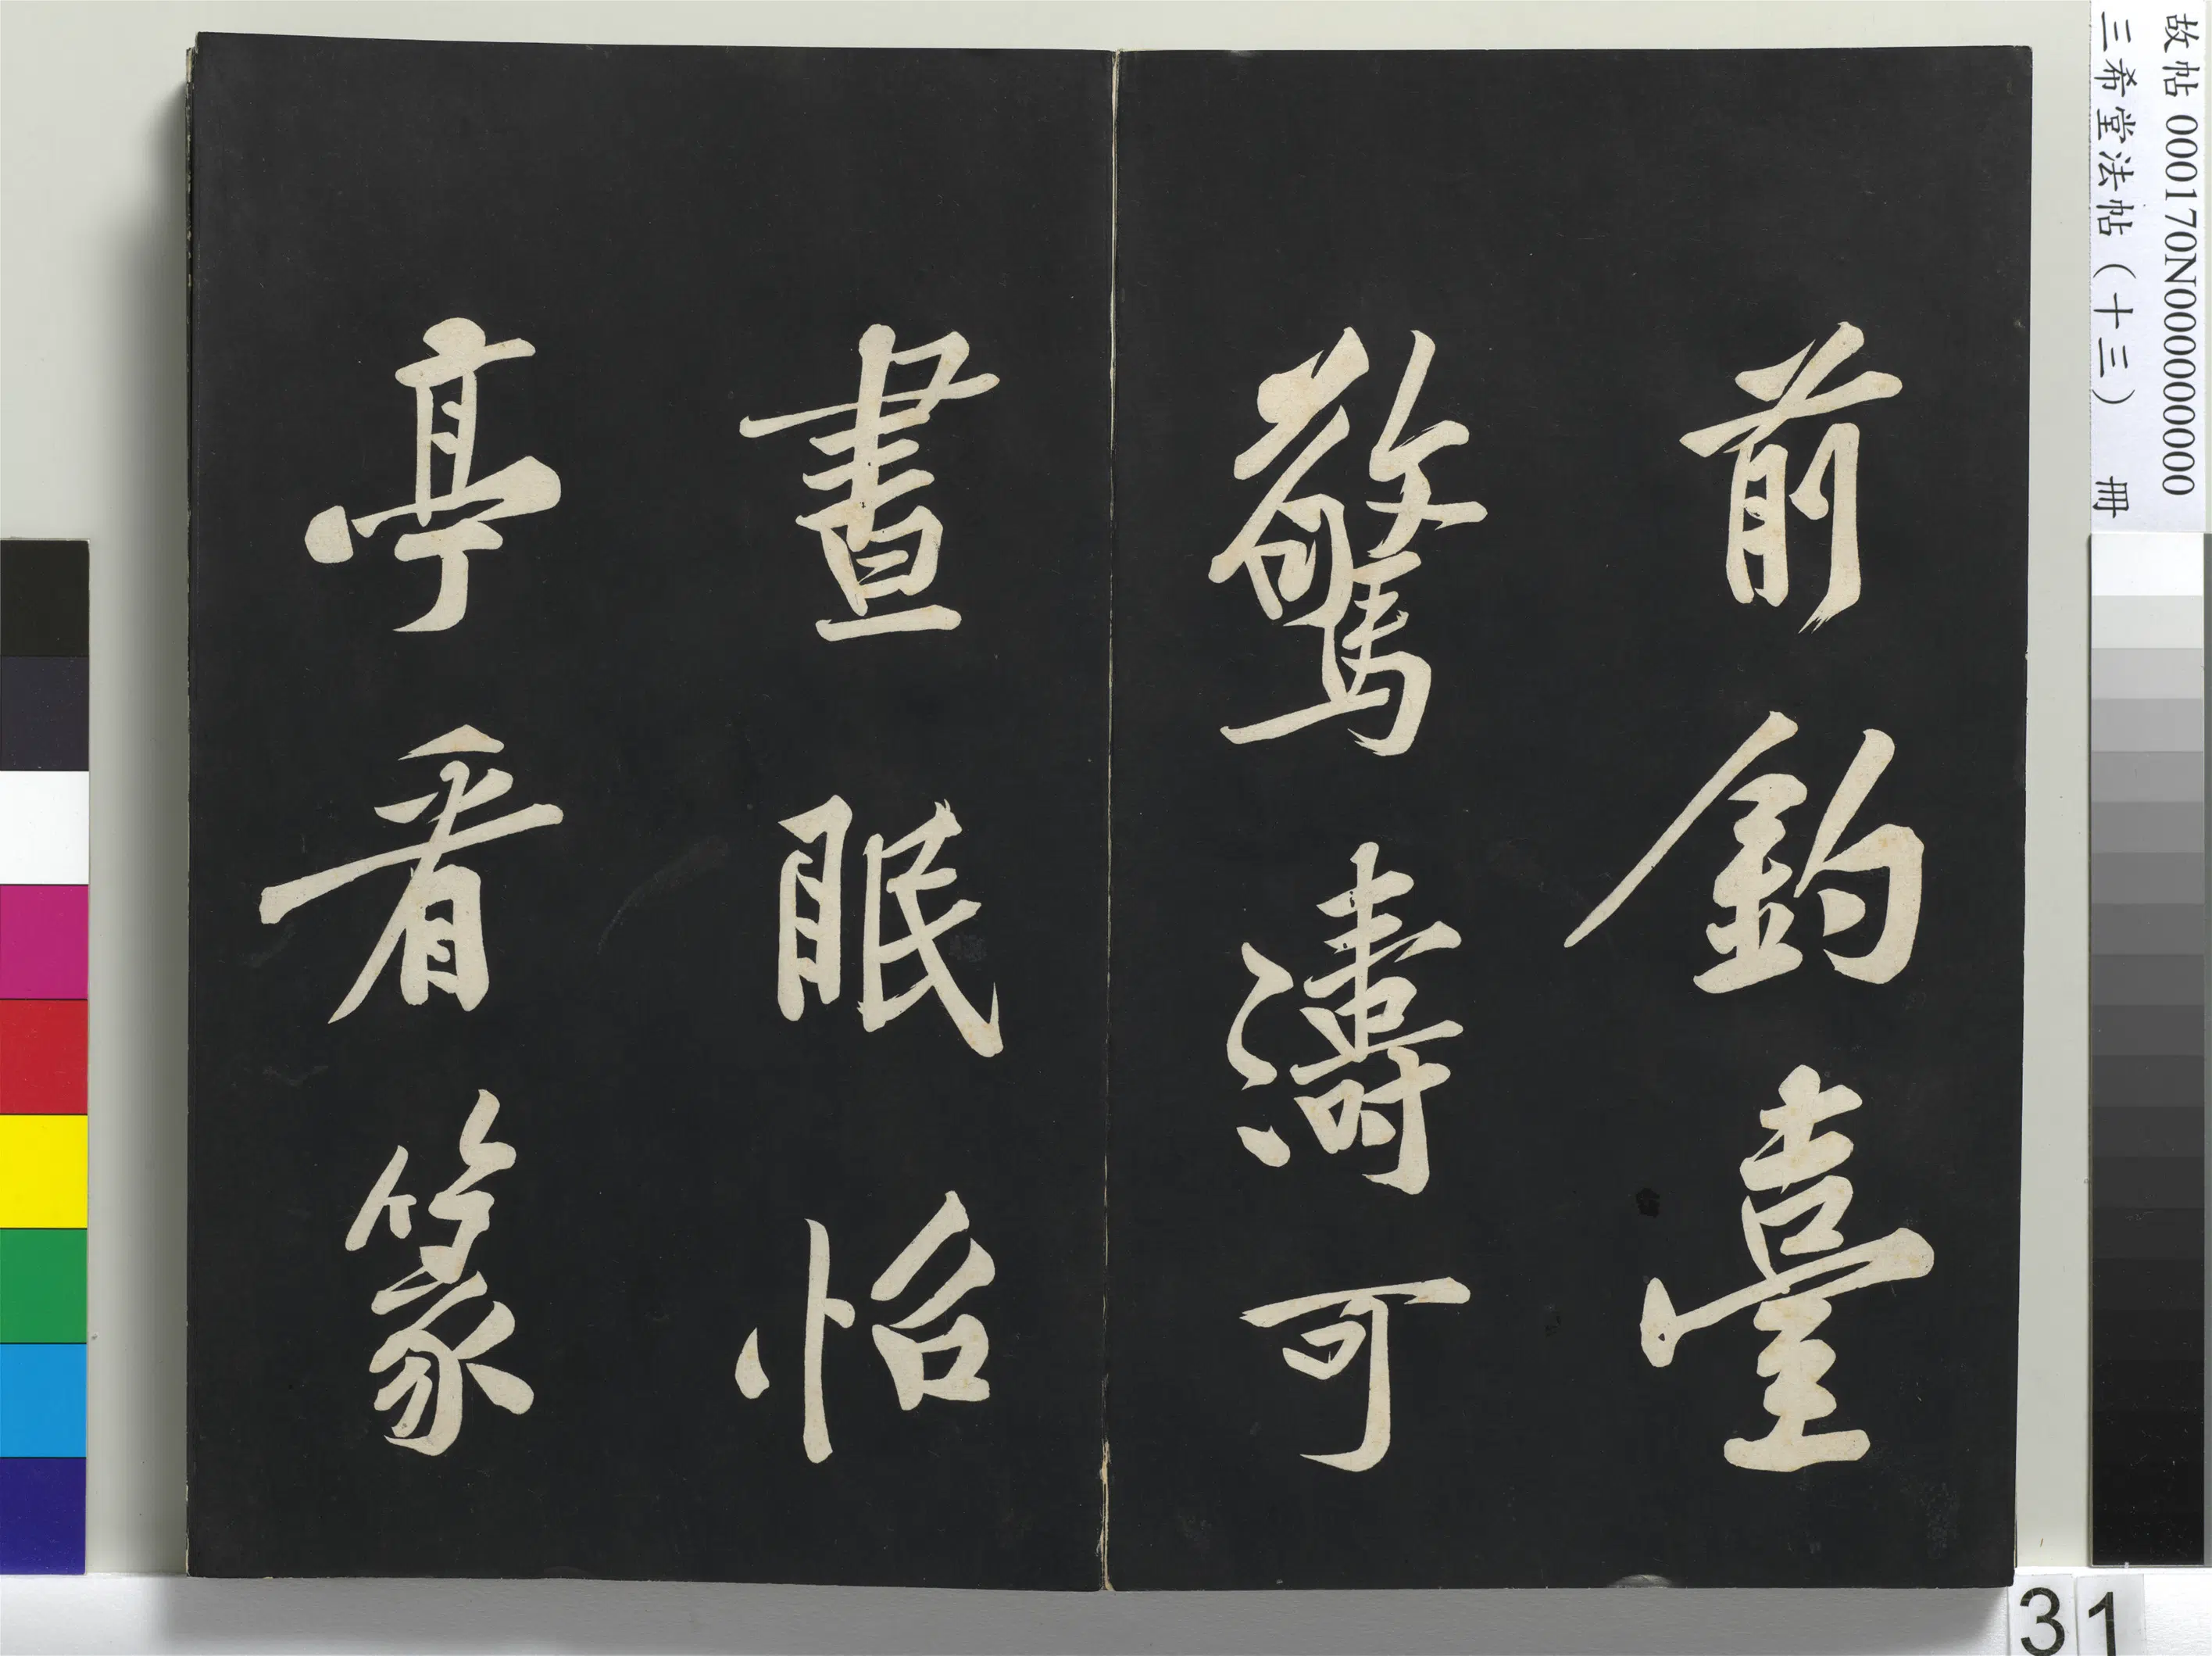 故帖 000170N000000000
三希堂法帖（十三） 冊
前釣臺
驚濤可
晝眠怡
亭看篆
31